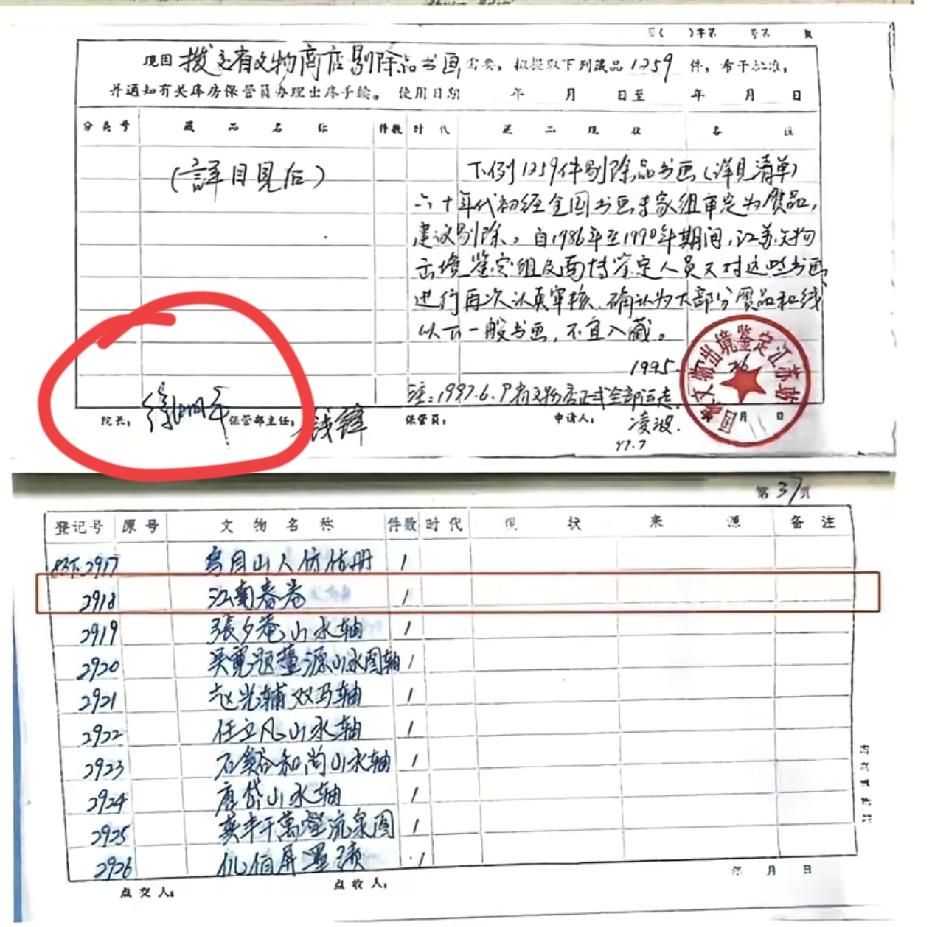 现因 拨交省文物商店剔除品书画 需要，拟提取下列藏品 1259 件，希予批准，
并通知有关库房保管员办理出库手续。 使用日期 年 月 日至 年 月 日
分类号 藏品名称 件数 时代 藏品现状 备注
(詳目見后)
下例1259件剔除品书画(详见清单)
六十年代初经全国书画专家组审定为贋品，
建议剔除。自1986年至1990年期间，江苏文物
出境鉴定组及南博鉴定人员又对这些书画
进行再次认真审核、确认为大部分贋品和线
以下一般书画，不宜入藏。
1995
注：1997.6.
月 日
院长： 徐湖平 保管部主任： 钱锋 保管员： 申请人： 凌波
97.7
国家文物出境鉴定江苏站
第 37 页
登记号 原号 文物名称 件数 时代 现状 来源 备注
2917 仿 册 1
2918 江南春卷 1
2919 張夕庵山水轴 1
2920 吴寬题董源山水图轴 1
2921 赵光辅双马轴 1
2922 任立凡山水轴 1
2923 石谿和尚山水轴 1
2924 唐岱山水轴 1
2925 千萬壑流泉图 1
2926 伯屏墨 1
点交人： 点收人： 年 月 日